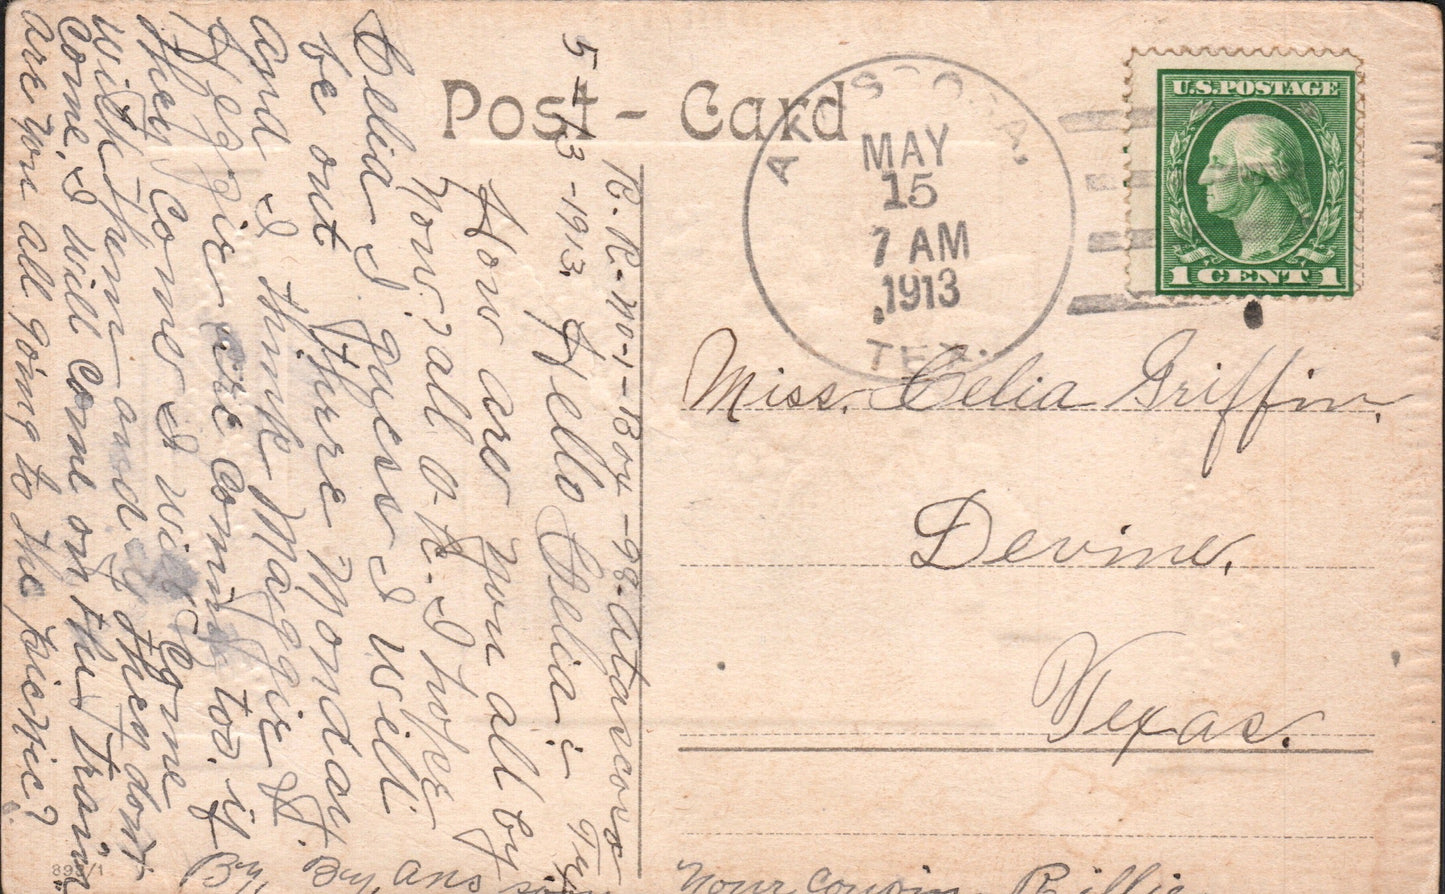 Post-Card
R.R-no-1-Box-98-Atascosa Tex
5-13-1913
Hello Celia:-
How are you all by
now? all O.K- I hope
Celia I guess I will
be out there Monday
and I think Maggie &
Jessie are coming too. if
they come I will come
with them and if they dont
come, I will come on the train
are you all going to the picnic?
By, By, ans soon
your cousin Billie
ATASCOSA,
MAY
15
7 AM
1913
TEX.
U.S. POSTAGE
1 CENT 1
Miss. Celia Griffin,
Devine,
Texas.